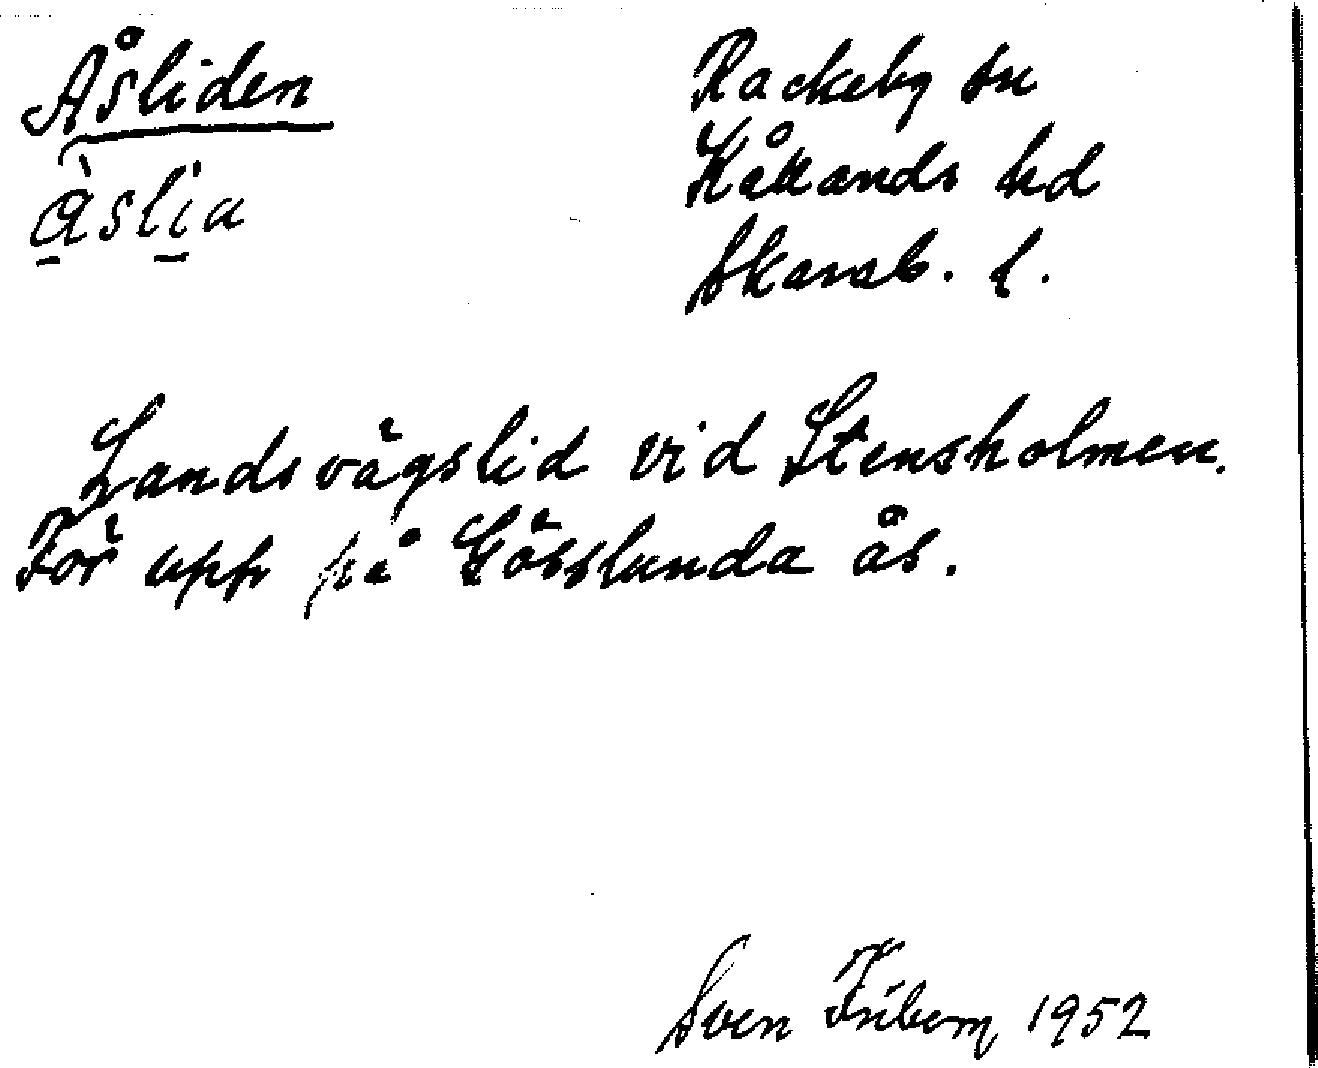 Åsliden
Rackeby sn
àslia
Kållands hd
Skarab. l.
Landsvägslid vid Stensholmen.
För upp på Gösslunda ås.
Sven Friberg 1952